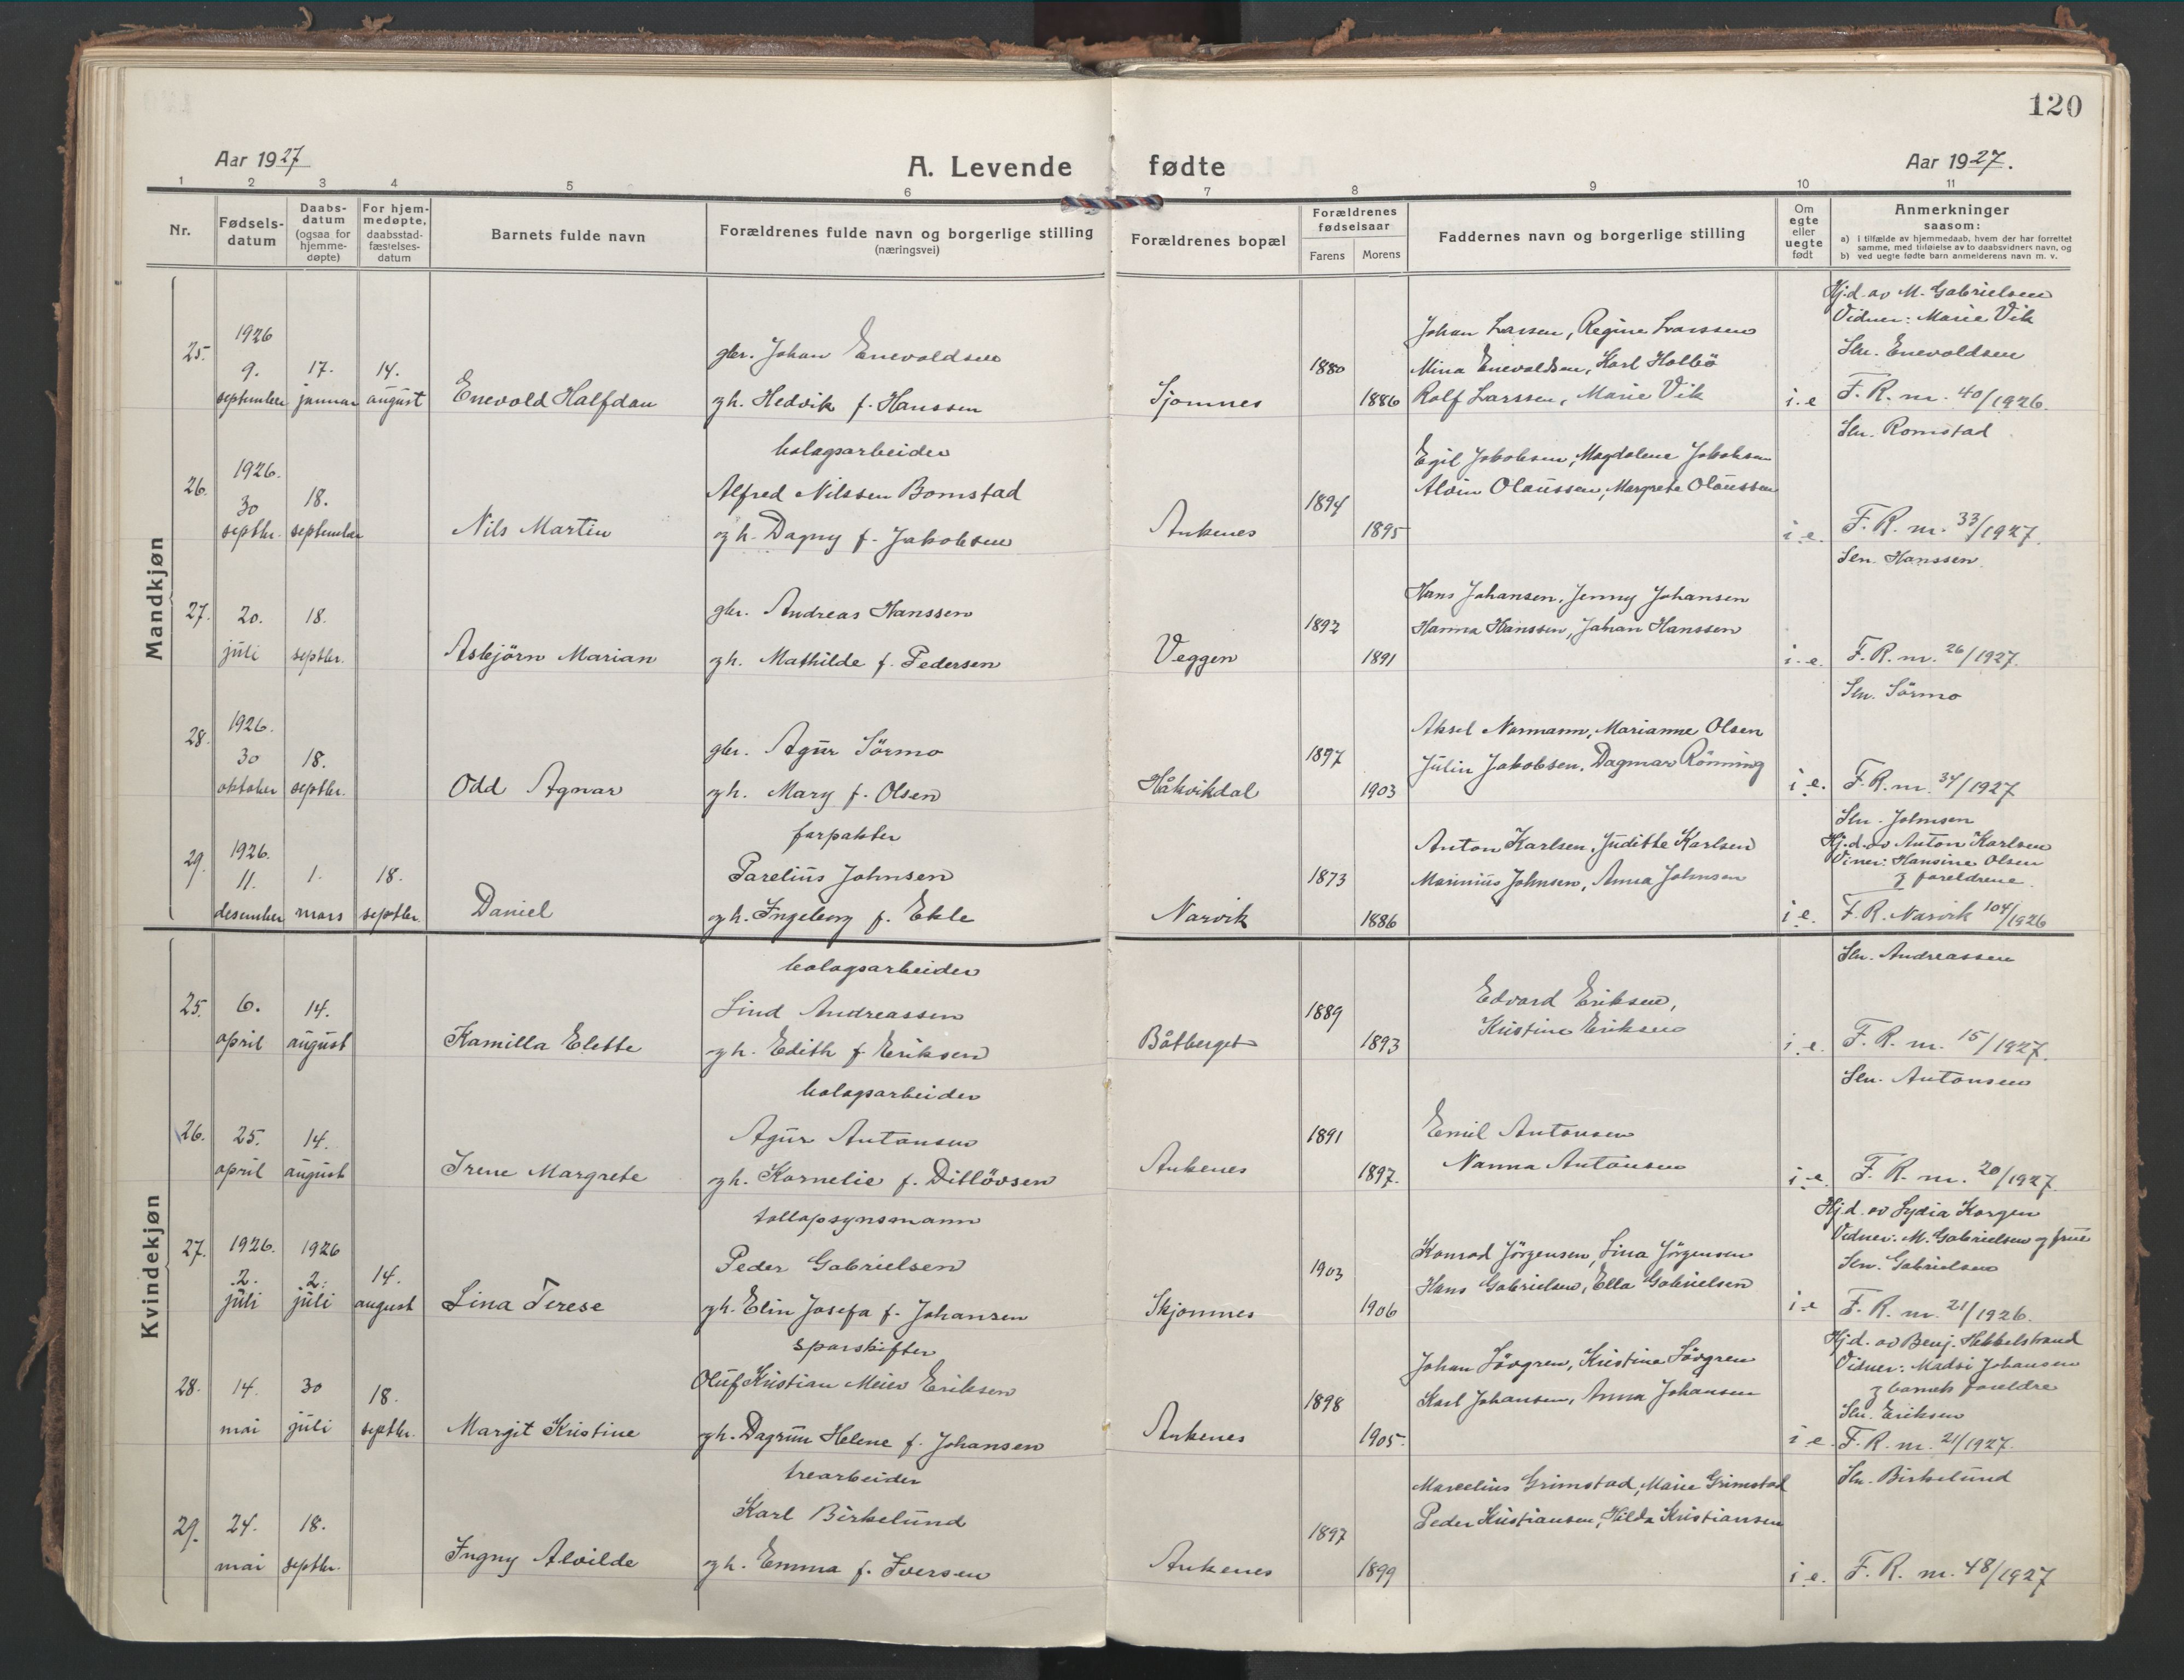 120
Aar 1927
A. Levende fødte
Aar 1927.
1 2 3 4 5 6 7 8 9 10 11
Nr.
Fødsels-
datum
Daabs-
datum
(ogsaa for
hjemme-
døpte)
For hjem-
medøpte,
daabsstad-
fæstelses-
datum
Barnets fulde navn
Forældrenes fulde navn og borgerlige stilling
(næringsvei)
Forældrenes bopæl
Forældrenes
fødselsaar
Farens
Morens
Faddernes navn og borgerlige stilling
Om
egte
eller
uegte
født
Anmerkninger
saasom:
a) I tilfælde av hjemmedaab, hvem der har forrettet
samme, med tilføielse av to daabsvidners navn, og
b) ved uegte fødte barn anmelderens navn m. v.
Mandkjøn
25.
1926
9.
september
17.
januar
14.
august
Enevold Halfdan
gbr. Johan Enevoldsen
og h. Hedvik f. Hanssen
Sjomnes
1880
1886
Johan Larsen, Regine Larssen
Mina Enevoldsen, Karl Holbö
Rolf Larssen, Marie Vik
i. e
Hjd. av M. Gabrielsen
Vidner: Marie Vik
Sln. Enevoldsen
F. R. nr. 40/1926.
26.
1926.
30
septbr.
18.
september
Nils Martin
bolagsarbeider
Alfred Nilssen Bomstad
og h. Dagny f. Jakobsen
Ankenes
1894
1895
Egil Jakobsen, Magdalene Jakobsen
Alvin Olaussen, Margrete Olaussen
i. e.
Sln. Romstad
F. R. nr. 33/1927.
27.
20.
juli
18.
septbr.
Asbjörn Marian
gbr. Andreas Hanssen
og h. Mathilde f. Pedersen
Veggen
1892
1891
Hans Johansen, Jenny Johansen
Hanna Hanssen, Johan Hanssen
i. e.
Sln. Hanssen.
F. R. nr. 26/1927.
28.
1926.
30
oktober
18.
septbr.
Odd Agnar
gbr. Agur Sörmo
og h. Mary f. Olsen
Håkvikdal
1897
1903
Aksel Normann, Marianne Olsen
Julin Jakobsen, Dagmar Rönning
i. e.
Sln. Sörmo
F. R. nr. 34/1927
29.
1926.
11.
desember
1.
mars
18.
septbr.
Daniel
forpakter
Parelius Johnsen
og h. Ingeborg f. Ekle
Narvik
1873
1886
Anton Karlsen, Judithe Karlsen
Marinius Johnsen, Anna Johnsen
i e.
Sln. Johnsen
Hj.d. av Anton Karlsen
Viner: Hansine Olsen
og foreldrene.
F. R. Narvik 104/1926
Kvindekjøn
25.
6.
april
14.
august
Kamilla Elette
bolagsarbeider
Lind Andreassen
og h. Edith f. Eriksen
Båtberget
1889
1893
Edvard Eriksen,
Kristine Eriksen
i. e.
Sln. Andreassen
F. R. nr. 15/1927.
26.
25.
april
14.
august
Irene Margrete
bolagsarbeider
Agur Antonsen
og h. Kornelie f. Ditlövsen
Ankenes
1891
1897.
Emil Antonsen
Nanna Antonsen
i. e.
Sln. Antonsen
F. R. nr. 20/1927
27.
1926.
2.
juli
1926
2.
juli
14.
august
Lina Terese
tollopsynsmann
Peder Gabrielsen
og h. Elin Josefa f. Johansen
Skjomnes
1903
1906
Konrad Jörgensen, Lina Jörgensen
Hans Gabrielsen, Ella Gabrielsen
i. e
Hjd. av Lydia Korgen
Vidner: M. Gabrielsen og frue
Sln. Gabrielsen
F. R. nr. 21/1926.
28.
14.
mai
30
juli
18.
septbr.
Margit Kristine
sporskifter
Oluf Kristian Meier Eriksen
og h. Dagrun Helene f. Johansen
Ankenes
1898
1905.
Johan Lövgren, Kristine Lövgren
Karl Johansen, Anna Johansen
i. e.
Hjd. av Benj. Hebbelstrand
Vidner: Madsi Johansen
og barnets foreldre
Sln. Eriksen
F. R. nr. 21/1927.
29.
24.
mai
18.
septbr.
Ingny Alvilde
trearbeider
Karl Birkelund
og h. Emma f. Iversen
Ankenes
1897
1899
Marcelius Grimstad, Marie Grimstad
Peder Kristiansen, Hilda Kristiansen
i. e.
Sln. Birkelund
F. R. nr. 48/1927